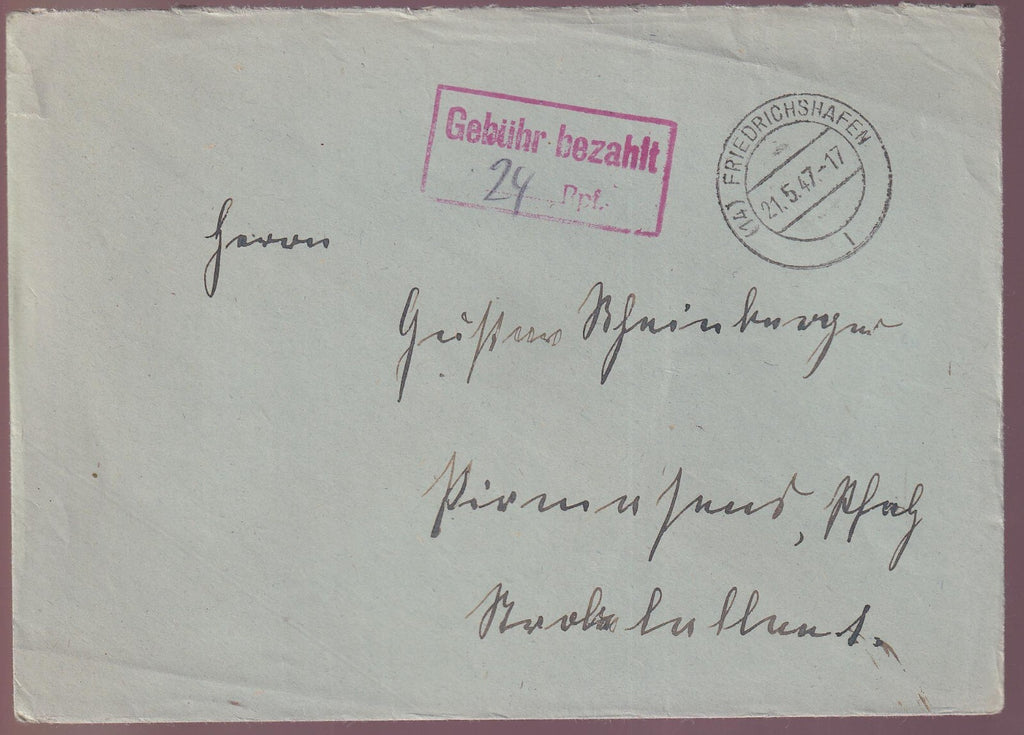 Gebühr bezahlt
24 Rpf.
(14) FRIEDRICHSHAFEN
21.5.47.-17
1
Herrn
Gustav Scheinberger
Pirmasens, Pfalz